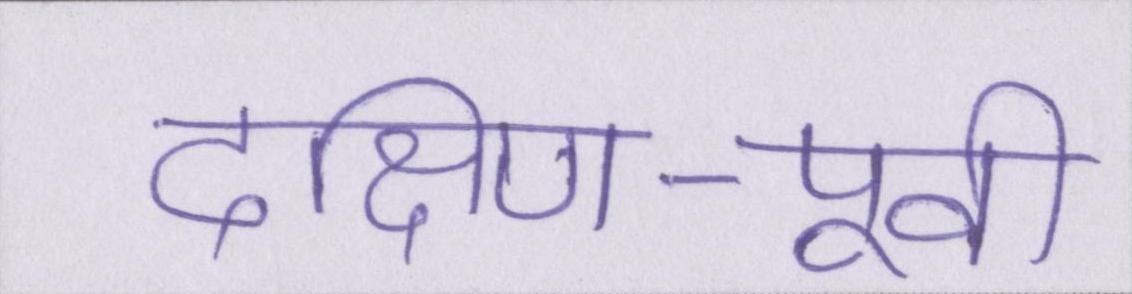 दक्षिण-पूवी